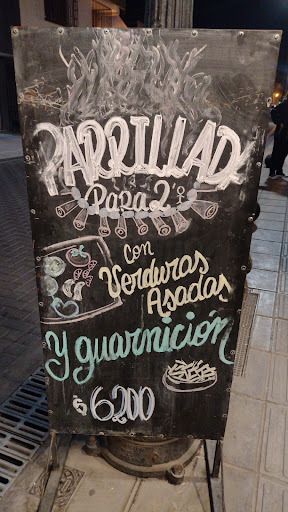 PARRILLADA
Para 2
con
Verduras
Asadas
y guarnición
$ 6200